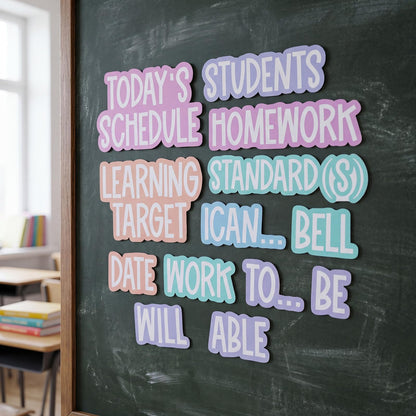 TODAY'S SCHEDULE
STUDENTS
HOMEWORK
LEARNING TARGET
STANDARD(S)
I CAN... BELL
DATE WORK TO... BE
WILL ABLE